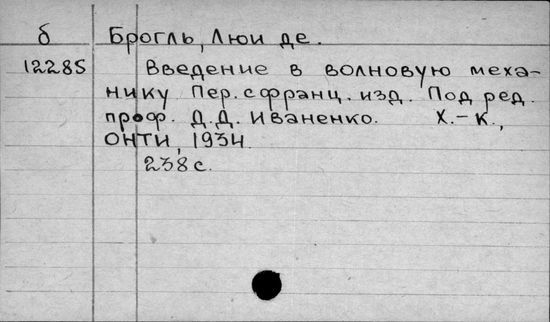 б Брогль, Люи де.
12285 Введение в волновую меха-
нику Пер. с франц. изд. Под ред.
проф. Д. Д. Иваненко. Х.-К.,
ОНТИ, 1934.
238 с.